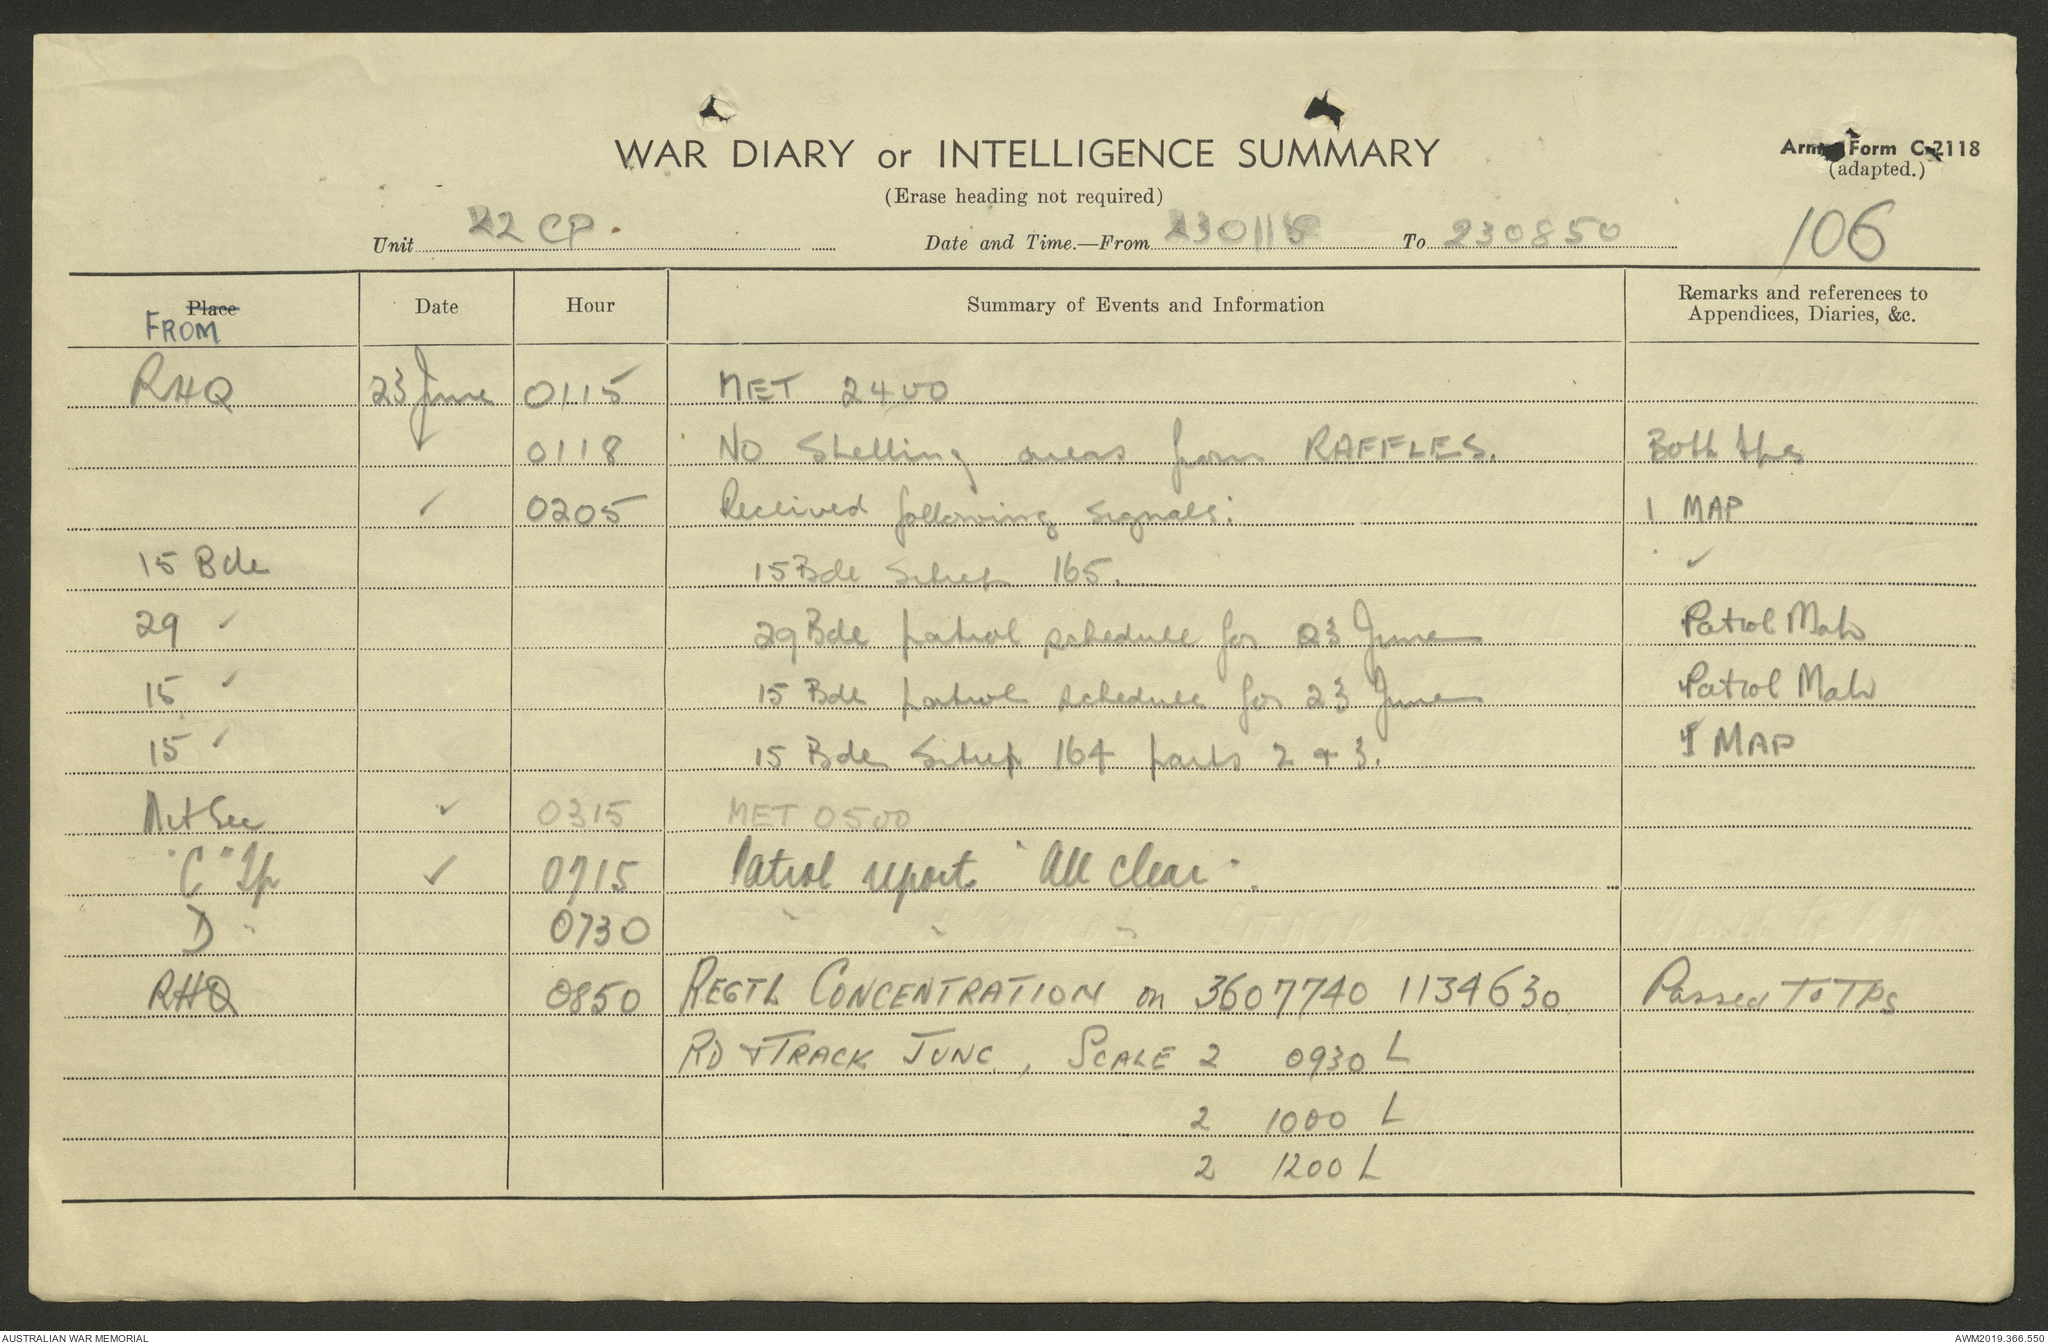 WAR DIARY or INTELLIGENCE SUMMARY
Army Form C-2118
(adapted.)
(Erase heading not required)
106
Unit 22 CP. Date and Time.—From 230115 To 230850
Place Date Hour Summary of Events and Information Remarks and references to Appendices, Diaries, &c.
FROM
RHQ 23 June 0115 MET 2400
✓ 0118 No Shelling areas from RAFFLES. Both tps
✓ 0205 Received following signals: 1 MAP
15 Bde 15 Bde Sitrep 165. ✓
29 ✓ 29 Bde patrol schedule for 23 June Patrol Map
15 ✓ 15 Bde patrol schedule for 23 June Patrol Map
15 ✓ 15 Bde Sitrep 164 parts 2 & 3. 1 MAP
Met Sec ✓ 0315 MET 0500
"C" Tp ✓ 0715 Patrol report "All clear".
D " 0730 " " "
RHQ 0850 REGTL CONCENTRATION on 3607740 1134630 Passed to TPS
RD & TRACK JUNC, SCALE 2 0930 L
2 1000 L
2 1200 L
AUSTRALIAN WAR MEMORIAL
AWM2019.366.550